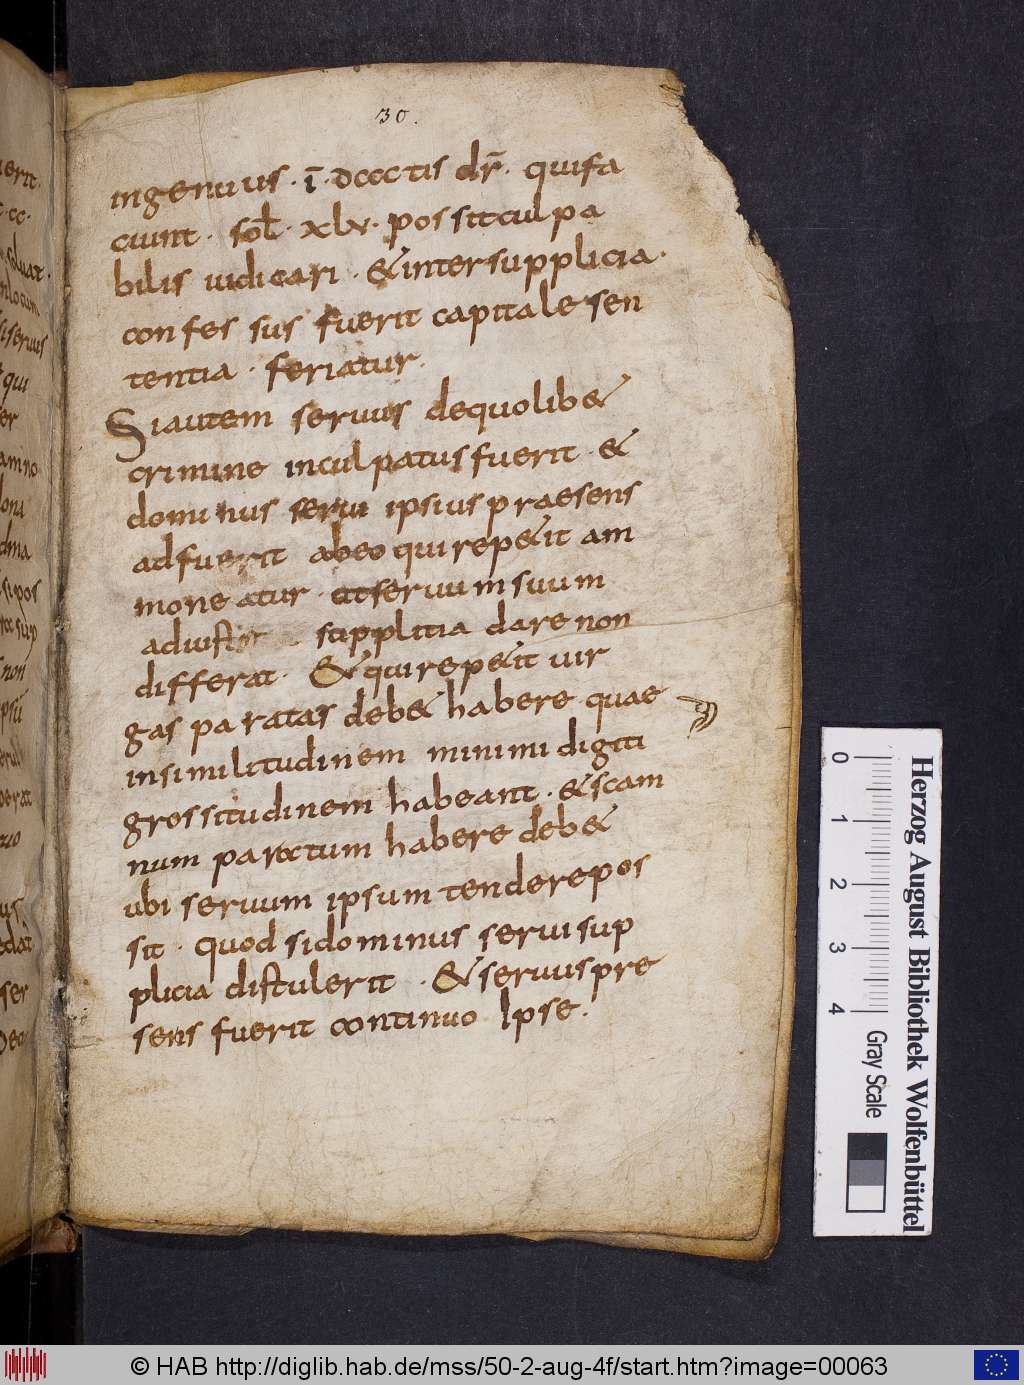 30.
ingenuus · ī · dccc tis dr̄ · quifa
ciunt · sol̄ · xlv · pos sit cul pa
bilis iudicari · & inter supplicia ·
confes sus fuerit capitale sen
tentia · feriatur ·
Si autem seruus de quolib&
crimine inculpatus fuerit · &
dominus serui ipsius praesens
adfuerit ab eo qui rep&it am
moneatur · ut seruum suum
ad iustir supplitia dare non
differat · & qui rep&it uir
gas paratas deb& habere quae
in similitudinem minimi digiti
grossitudinem habeant · & scam
num paratum habere deb&
ubi seruum ipsum tendere pos
sit · quod si dominus serui sup
plicia distulerit · & seruus pre
sens fuerit continuo Ipse ·
uerit ·
· cc ·
soluat ·
in locum
si seruus
qui
er
amno
doni
dina
si pos
sup
non
psū
erul
perat
uo
us
edat
ser
Deo
Herzog August Bibliothek Wolfenbüttel
0 1 2 3 4 Gray Scale
© HAB http://diglib.hab.de/mss/50-2-aug-4f/start.htm?image=00063